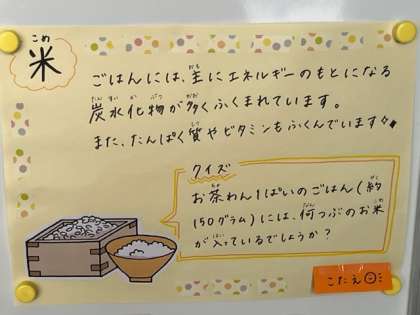 こめ
米
ごはんには、主にエネルギーのもとになる
炭水化物が多くふくまれています。
また、たんぱく質やビタミンもふくんでいます
クイズ
お茶わん1ぱいのごはん(約
150グラム)には、何つぶのお米
が入っているでしょうか?
こたえ